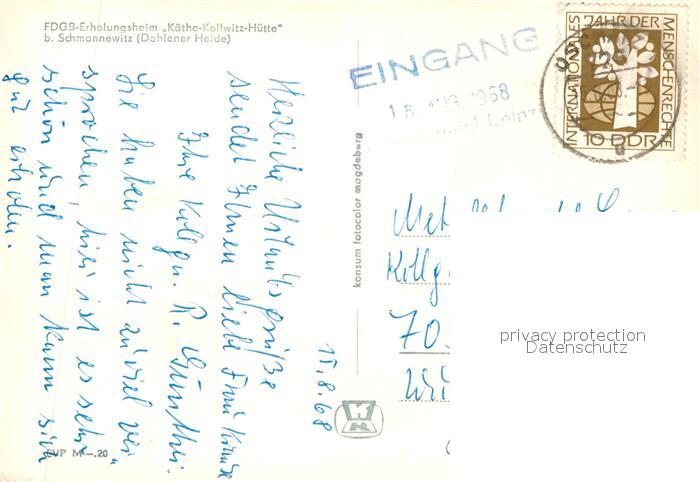 FDGB-Erholungsheim „Käthe-Kollwitz-Hütte"
b. Schmannewitz (Dahlener Heide)
EINGANG
15. AUG. 1968
INTERNATIONALES JAHR DER MENSCHENRECHTE
10 DDR
15.8.68
Herzliche Urlaubsgrüße
sendet Ihnen liebe Frau
Ihre Kollgn. R. Günther.
Sie haben nicht zuviel ver-
sprochen, hier ist es sehr
schön und man kann sich
gut erholen.
konsum fotocolor magdeburg
Kollg
70
privacy protection
Datenschutz
EVP M –.20